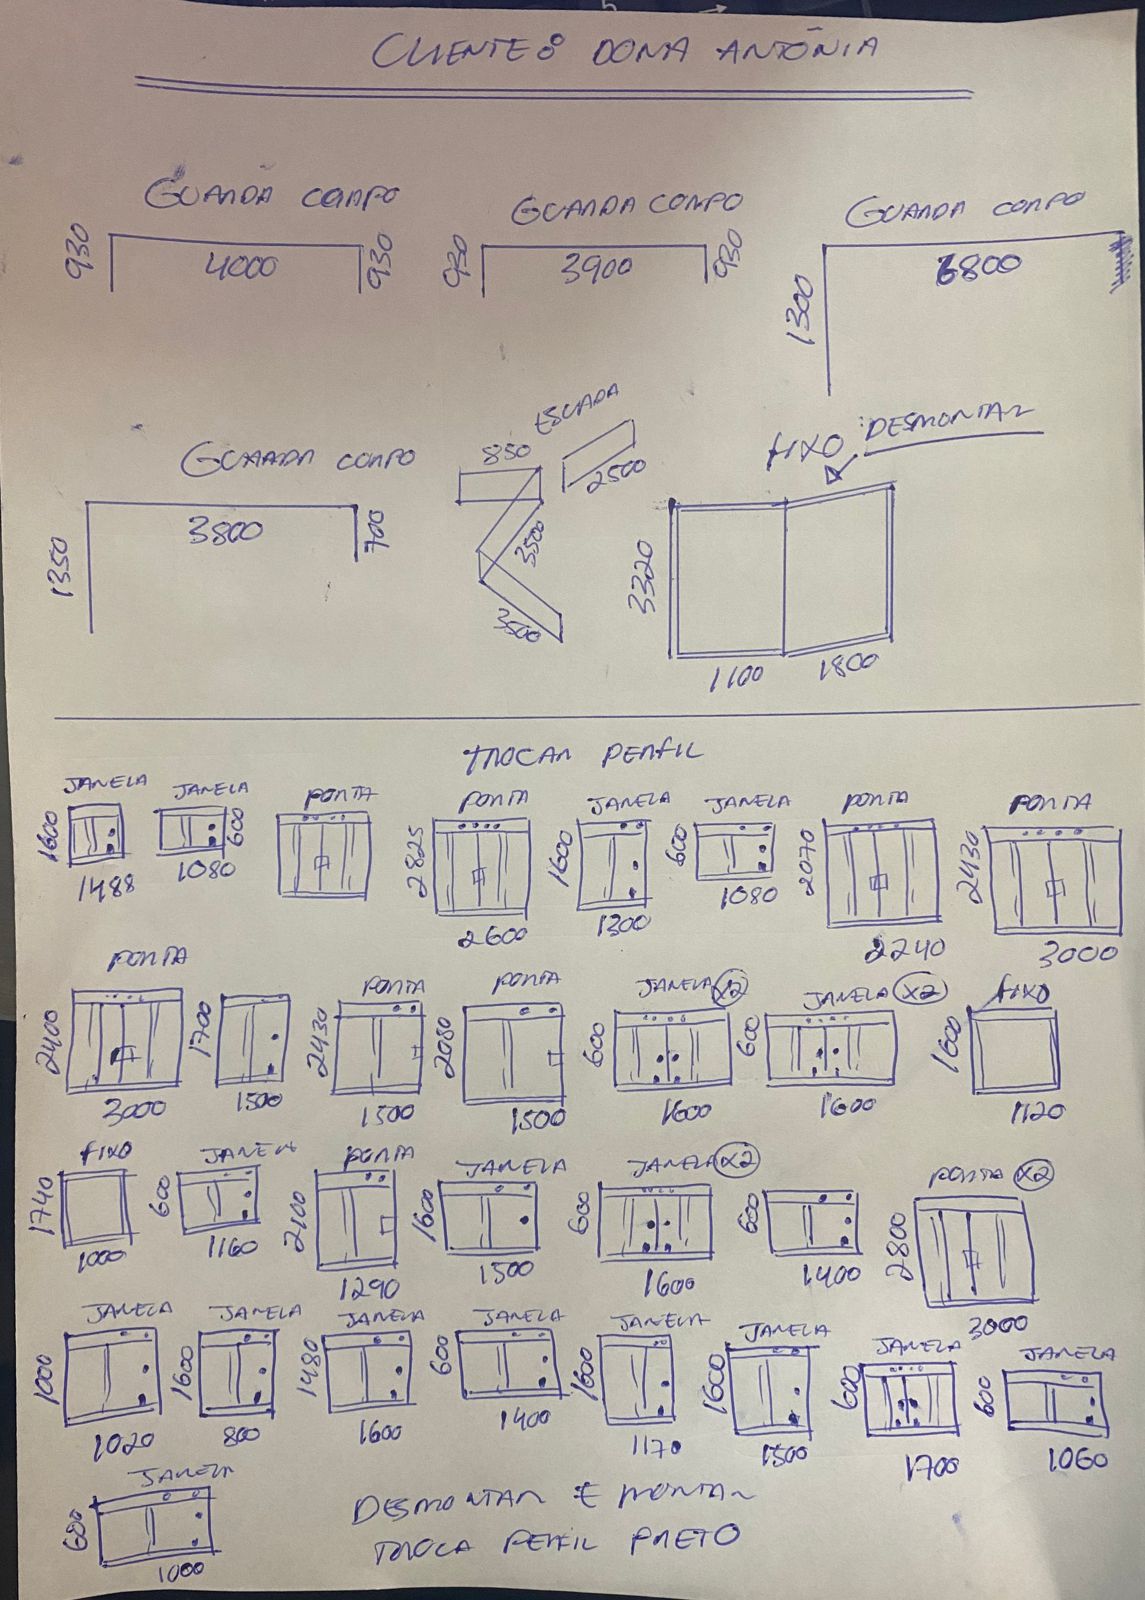 CLIENTE: DONA ANTÔNIA
GUARDA CORPO GUARDA CORPO GUARDA CORPO
930 4000 930 930 3900 930 1300 6800
GUARDA CORPO ESCADA FIXO DESMONTAR
1350 3800 700 850 2500 3500 3500 3320 1100 1800
TROCAR PERFIL
JANELA JANELA PORTA PORTA JANELA JANELA PORTA PORTA
1600 600 2825 1600 600 2070 2430
1488 1080 2600 1300 1080 2240 3000
PORTA PORTA PORTA JANELA X2 JANELA X2 FIXO
2400 1700 2430 2080 600 600 1600
3000 1500 1500 1500 1600 1600 1120
FIXO JANELA PORTA JANELA JANELA X2 PORTA X2
1740 600 2100 1600 600 600 2800
1000 1160 1290 1500 1600 1400 3000
JANELA JANELA JANELA JANELA JANELA JANELA JANELA JANELA
1000 1600 1480 600 1600 1600 600 600
1020 800 1600 1400 1170 1500 1700 1060
JANELA
600
1000
DESMONTAR E MONTAR
TROCA PERFIL PRETO